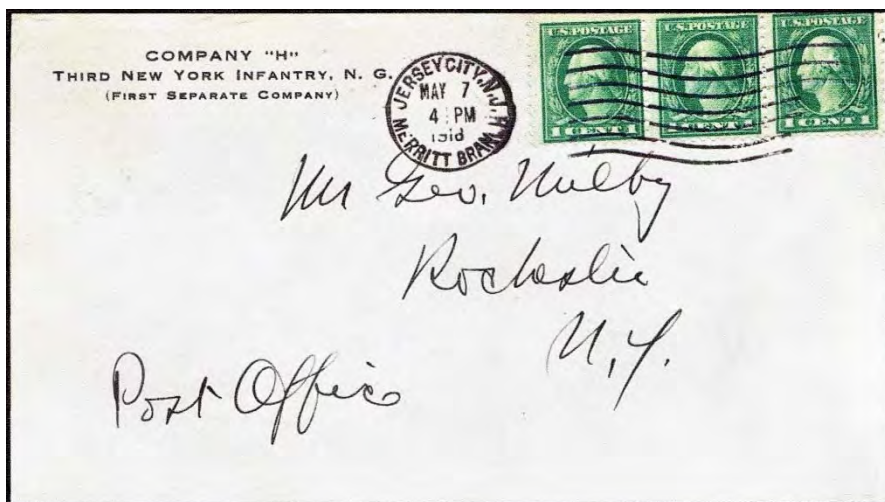 COMPANY "H"
THIRD NEW YORK INFANTRY, N. G.
(FIRST SEPARATE COMPANY)
JERSEY CITY, N.J.
MAY 7
4 PM
1918
MERRITT BRAN
U.S. POSTAGE
1 CENT 1
U.S. POSTAGE
1 CENT 1
U.S. POSTAGE
1 CENT 1
Mr Geo. Milby
Rochester
N.Y.
Post Office